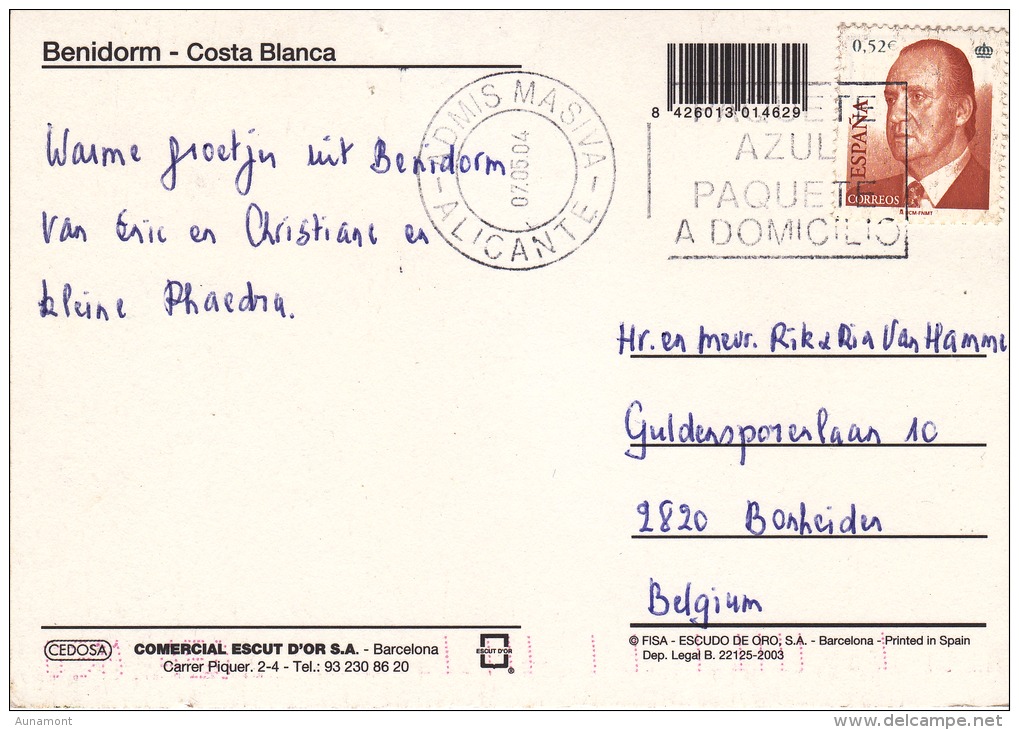 Benidorm - Costa Blanca
Warme groetjes uit Benidorm
van Eric en Christiane en
kleine Phaedra.
8 426013 014629
ADMIS MASIVA
07.05.04
ALICANTE
PAQUETE
AZUL
PAQUETE
A DOMICILIO
0,52€
ESPAÑA
CORREOS
RCM-FNMT
Hr. en mevr. Rik & Ria Van Hamme
Guldensporenlaan 10
2820 Bonheiden
Belgium
CEDOSA
COMERCIAL ESCUT D'OR S.A. - Barcelona
Carrer Piquer. 2-4 - Tel.: 93 230 86 20
ESCUT D'OR
®
© FISA - ESCUDO DE ORO, S.A. - Barcelona - Printed in Spain
Dep. Legal B. 22125-2003
Aunamont
www.delcampe.net